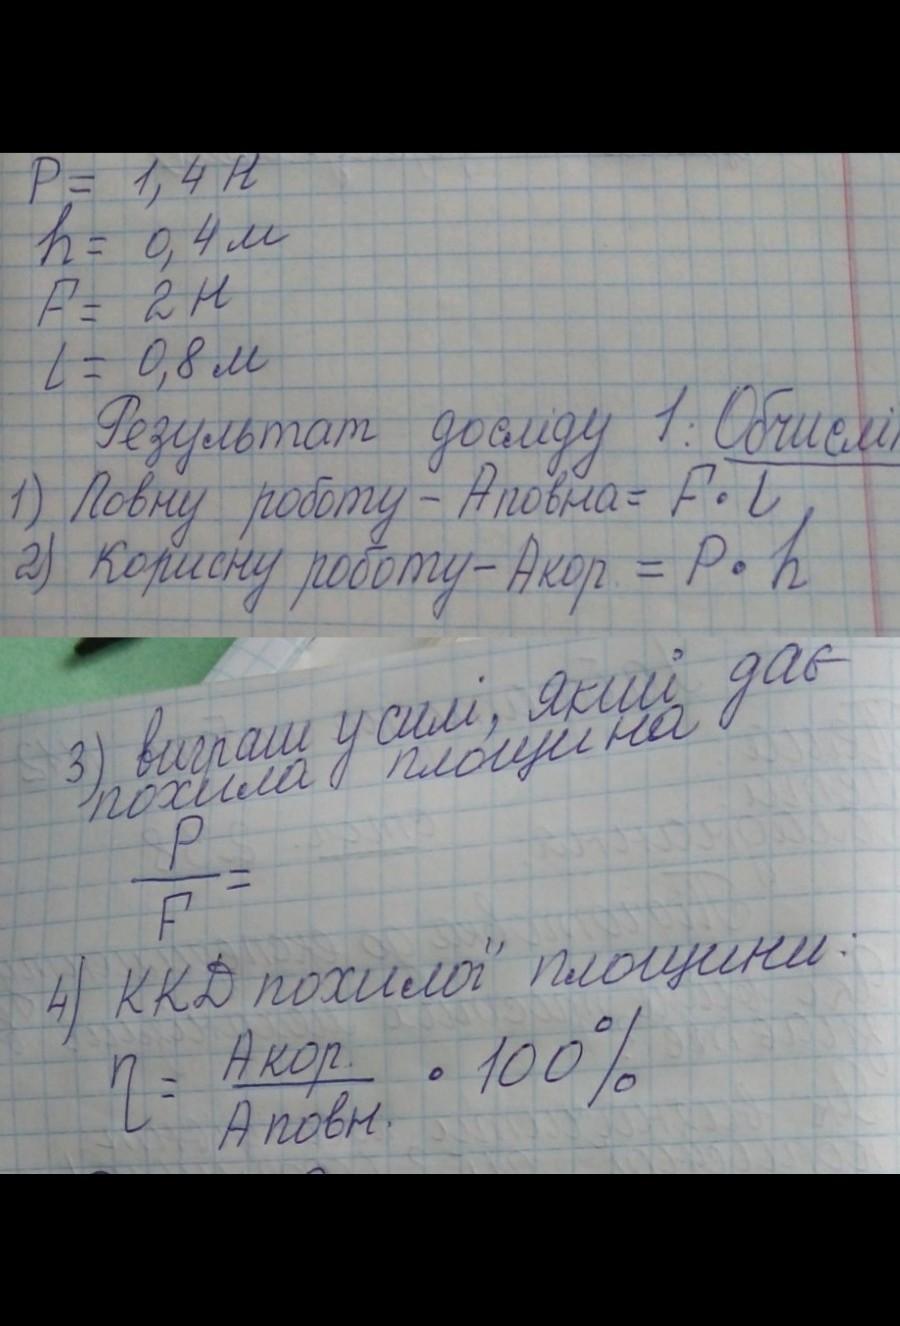 P = 1,4 Н
h = 0,4 м
F = 2 Н
l = 0,8 м
Результат досліду 1: Обчислі
1) Повну роботу - Аповна = F · l
2) Корисну роботу - Акор. = P · h
3) виграш у силі, який дає
похила площина
P
— =
F
4) ККД похилої площини:
η = Акор. / Аповн. · 100%